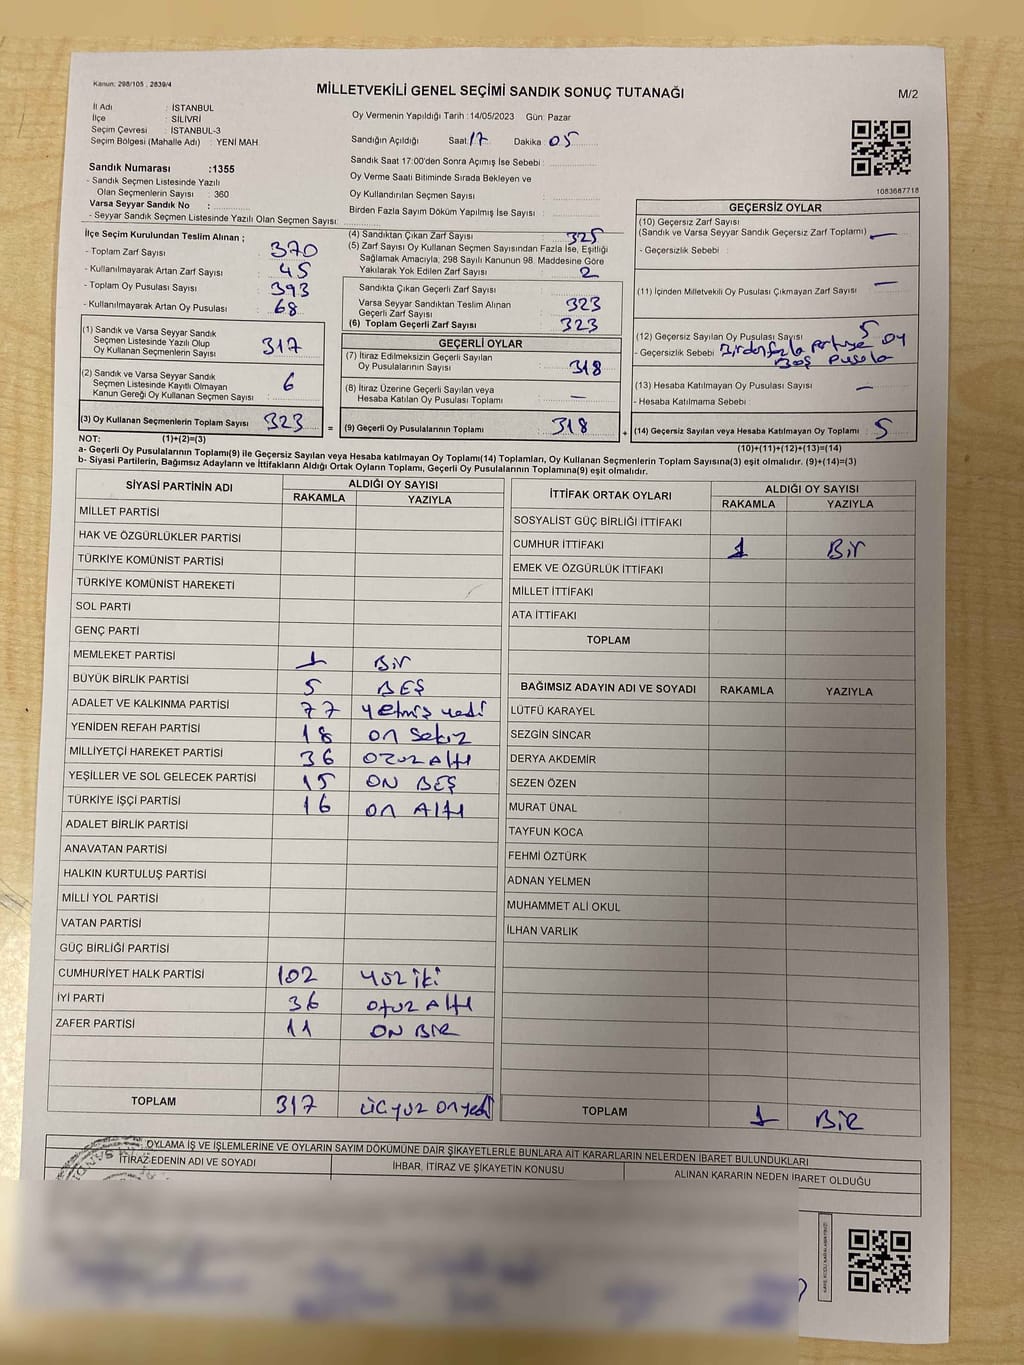 Kanun: 298/105 , 2839/4
MİLLETVEKİLİ GENEL SEÇİMİ SANDIK SONUÇ TUTANAĞI
M/2
İl Adı : İSTANBUL
İlçe : SİLİVRİ
Seçim Çevresi : İSTANBUL-3
Seçim Bölgesi (Mahalle Adı) : YENİ MAH
Oy Vermenin Yapıldığı Tarih :14/05/2023 Gün: Pazar
Sandığın Açıldığı Saat: 17 Dakika 05
Sandık Saat 17:00'den Sonra Açımış İse Sebebi :
Oy Verme Saati Bitiminde Sırada Bekleyen ve
Oy Kullandırılan Seçmen Sayısı :
Birden Fazla Sayım Döküm Yapılmış İse Sayısı :
1083687718
Sandık Numarası :1355
- Sandık Seçmen Listesinde Yazılı
Olan Seçmenlerin Sayısı : 360
Varsa Seyyar Sandık No :
- Seyyar Sandık Seçmen Listesinde Yazılı Olan Seçmen Sayısı:
İlçe Seçim Kurulundan Teslim Alınan ;
- Toplam Zarf Sayısı : 370
- Kullanılmayarak Artan Zarf Sayısı : 45
- Toplam Oy Pusulası Sayısı : 393
- Kullanılmayarak Artan Oy Pusulası : 68
(1) Sandık ve Varsa Seyyar Sandık
Seçmen Listesinde Yazılı Olup
Oy Kullanan Seçmenlerin Sayısı : 317
(2) Sandık ve Varsa Seyyar Sandık
Seçmen Listesinde Kayıtlı Olmayan
Kanun Gereği Oy Kullanan Seçmen Sayısı : 6
(3) Oy Kullanan Seçmenlerin Toplam Sayısı : 323
(4) Sandıktan Çıkan Zarf Sayısı : 325
(5) Zarf Sayısı Oy Kullanan Seçmen Sayısından Fazla İse, Eşitliği
Sağlamak Amacıyla, 298 Sayılı Kanunun 98. Maddesine Göre
Yakılarak Yok Edilen Zarf Sayısı : 2
Sandıkta Çıkan Geçerli Zarf Sayısı :
Varsa Seyyar Sandıktan Teslim Alınan
Geçerli Zarf Sayısı : 323
(6) Toplam Geçerli Zarf Sayısı : 323
GEÇERLİ OYLAR
(7) İtiraz Edilmeksizin Geçerli Sayılan
Oy Pusulalarının Sayısı : 318
(8) İtiraz Üzerine Geçerli Sayılan veya
Hesaba Katılan Oy Pusulası Toplamı : —
= (9) Geçerli Oy Pusulalarının Toplamı : 318
GEÇERSİZ OYLAR
(10) Geçersiz Zarf Sayısı
(Sandık ve Varsa Seyyar Sandık Geçersiz Zarf Toplamı) —
- Geçersizlik Sebebi :
(11) İçinden Milletvekili Oy Pusulası Çıkmayan Zarf Sayısı : —
(12) Geçersiz Sayılan Oy Pusulası Sayısı : 5
- Geçersizlik Sebebi : Birden fazla partiye oy
Boş Pusula
(13) Hesaba Katılmayan Oy Pusulası Sayısı : —
- Hesaba Katılmama Sebebi :
+ (14) Geçersiz Sayılan veya Hesaba Katılmayan Oy Toplamı : 5
NOT: (1)+(2)=(3)
(10)+(11)+(12)+(13)=(14)
a- Geçerli Oy Pusulalarının Toplamı(9) ile Geçersiz Sayılan veya Hesaba katılmayan Oy Toplamı(14) Toplamları, Oy Kullanan Seçmenlerin Toplam Sayısına(3) eşit olmalıdır. (9)+(14)=(3)
b- Siyasi Partilerin, Bağımsız Adayların ve İttifakların Aldığı Ortak Oyların Toplamı, Geçerli Oy Pusulalarının Toplamına(9) eşit olmalıdır.
SİYASİ PARTİNİN ADI ALDIĞI OY SAYISI
RAKAMLA YAZIYLA
MİLLET PARTİSİ
HAK VE ÖZGÜRLÜKLER PARTİSİ
TÜRKİYE KOMÜNİST PARTİSİ
TÜRKİYE KOMÜNİST HAREKETİ
SOL PARTİ
GENÇ PARTİ
MEMLEKET PARTİSİ 1 Bir
BÜYÜK BİRLİK PARTİSİ 5 BEŞ
ADALET VE KALKINMA PARTİSİ 77 yetmiş yedi
YENİDEN REFAH PARTİSİ 18 on sekiz
MİLLİYETÇİ HAREKET PARTİSİ 36 otuz Altı
YEŞİLLER VE SOL GELECEK PARTİSİ 15 ON BEŞ
TÜRKİYE İŞÇİ PARTİSİ 16 on Altı
ADALET BİRLİK PARTİSİ
ANAVATAN PARTİSİ
HALKIN KURTULUŞ PARTİSİ
MİLLİ YOL PARTİSİ
VATAN PARTİSİ
GÜÇ BİRLİĞİ PARTİSİ
CUMHURİYET HALK PARTİSİ 102 yüz iki
İYİ PARTİ 36 otuz Altı
ZAFER PARTİSİ 11 ON BİR
TOPLAM 317 üçyüz onyedi
İTTİFAK ORTAK OYLARI ALDIĞI OY SAYISI
RAKAMLA YAZIYLA
SOSYALİST GÜÇ BİRLİĞİ İTTİFAKI
CUMHUR İTTİFAKI 1 Bir
EMEK VE ÖZGÜRLÜK İTTİFAKI
MİLLET İTTİFAKI
ATA İTTİFAKI
TOPLAM
BAĞIMSIZ ADAYIN ADI VE SOYADI RAKAMLA YAZIYLA
LÜTFÜ KARAYEL
SEZGİN SİNCAR
DERYA AKDEMİR
SEZEN ÖZEN
MURAT ÜNAL
TAYFUN KOCA
FEHMİ ÖZTÜRK
ADNAN YELMEN
MUHAMMET ALİ OKUL
İLHAN VARLIK
TOPLAM 1 BİR
OYLAMA İŞ VE İŞLEMLERİNE VE OYLARIN SAYIM DÖKÜMÜNE DAİR ŞİKAYETLERLE BUNLARA AİT KARARLARIN NELERDEN İBARET BULUNDUKLARI
İTİRAZ EDENİN ADI VE SOYADI İHBAR, İTİRAZ VE ŞİKAYETİN KONUSU ALINAN KARARIN NEDEN İBARET OLDUĞU